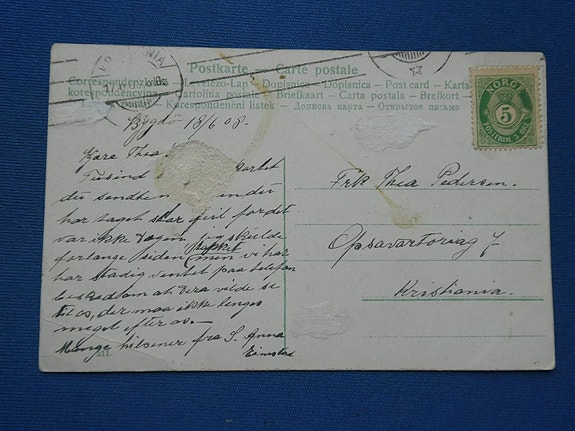 Postkarte — Carte postale
Correspondenzkarte — Levelezö-Lap — Dopisnica — Dopisnice — Post card — Karta
korespondencyjna — Cartolina postale — Briefkaart — Carta postala — Brefkort
Korespondenční lístek — Дописна карта — Открытое письмо
NORGE
5
POSTFRIM
Bygdö 18/6 08.
Kjære Thea
Tusind kortet
du sendte
har taget skar feil for det
var ikke dagen jeg skulde
forlange siden men vi har
har stadig ventet paa telefon
beskedom at Dera vilde se
til os, der maa ikke længes
meget efter os.—
Mange hilsener fra S. Anna
Einstad
Frk Thea Pedersen.
Opsavartoriag 7
Kristiania.